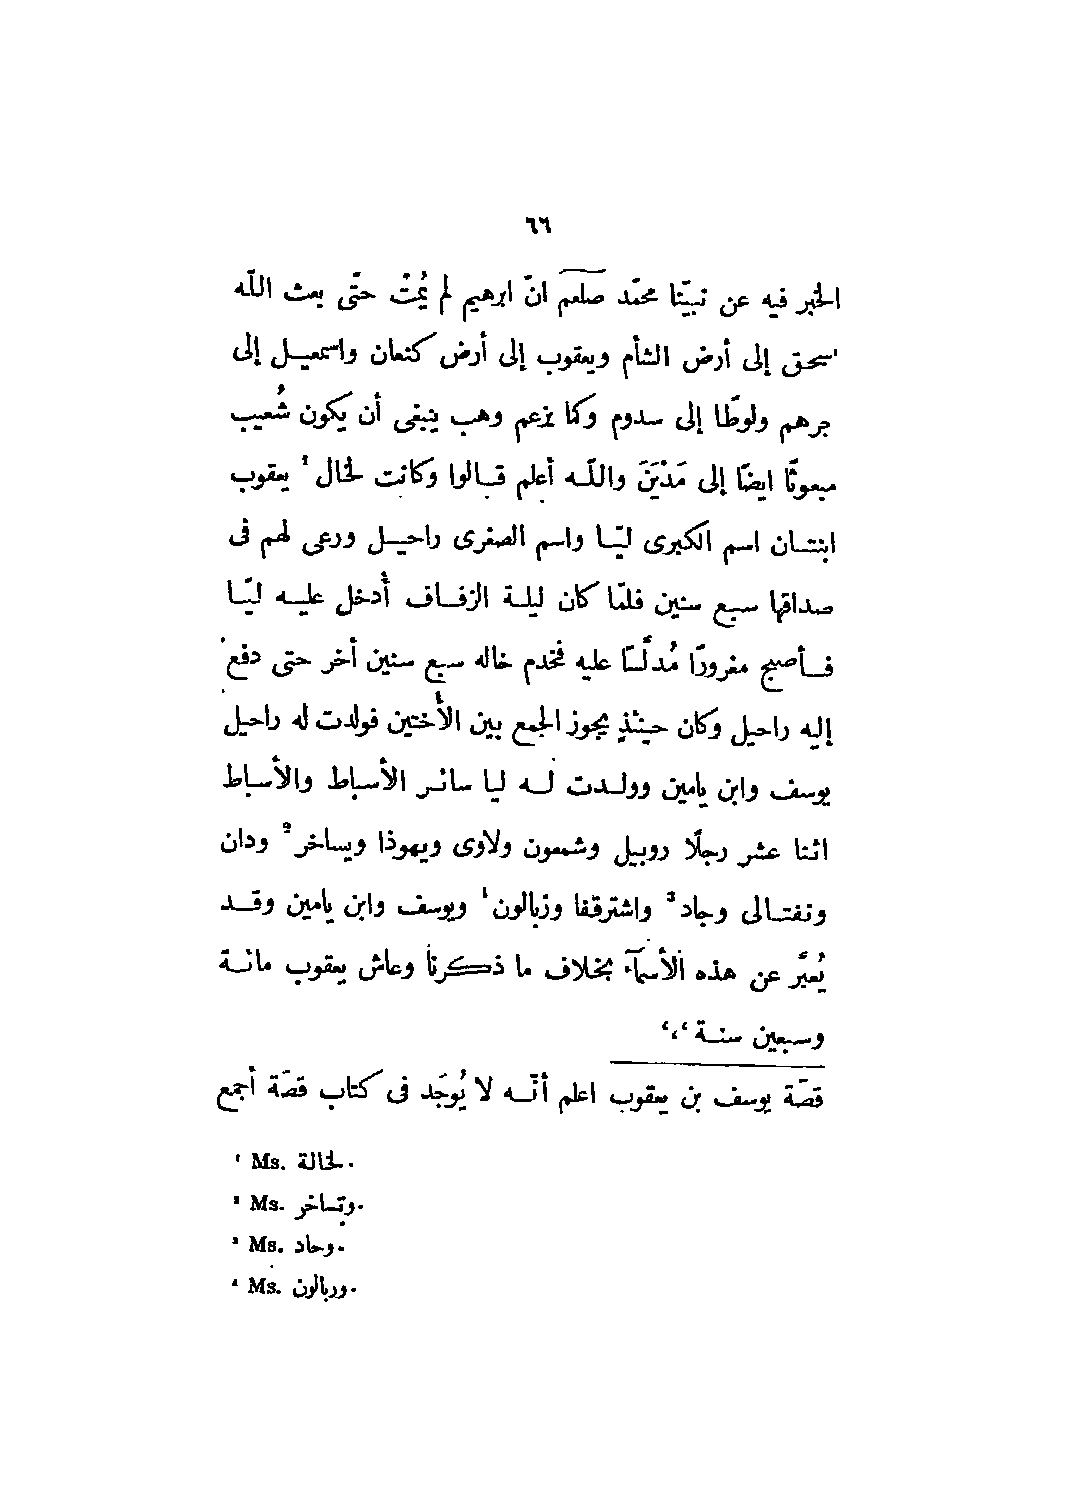 ٦٦
الخبر فيه عن نبيّنا محمّد صلعم انّ ابرهيم لم يُمتْ حتّى بعث اللّه
اسحق إلى أرض الشأم ويعقوب إلى أرض كنعان واسمعيل إلى
جرهم ولوطًا إلى سدوم وكما يزعم وهب ينبغى أن يكون شُعيب
مبعوثًا ايضًا إلى مَدْيَنَ واللّه أعلم قالوا وكانت لخال ¹ يعقوب
ابنتان اسم الكبرى ليّا واسم الصغرى راحيل ورعى لهم فى
صداقها سبع سنين فلمّا كان ليلة الزفاف أُدخل عليه ليّا
فأصبح مغرورًا مُدلَّسًا عليه فخدم خاله سبع سنين أخر حتى دفع
إليه راحيل وكان حينئذٍ يجوز الجمع بين الأُختين فولدت له راحيل
يوسف وابن يامين وولدت له ليا سائر الأسباط والأسباط
اثنا عشر رجلًا روبيل وشمعون ولاوى ويهوذا ويساخر ² ودان
ونفتالى وجاد ³ واشترقفا وزبالون ¹ ويوسف وابن يامين وقد
يُعبَّر عن هذه الأسمآء بخلاف ما ذكرنا وعاش يعقوب مائة
وسبعين سنة ،،،
قصّة يوسف بن يعقوب اعلم أنّه لا يُوجَد فى كتاب قصّة أجمع
¹ Ms. لخالة.
² Ms. وتساخر.
³ Ms. وحاد.
⁴ Ms. وربالون.